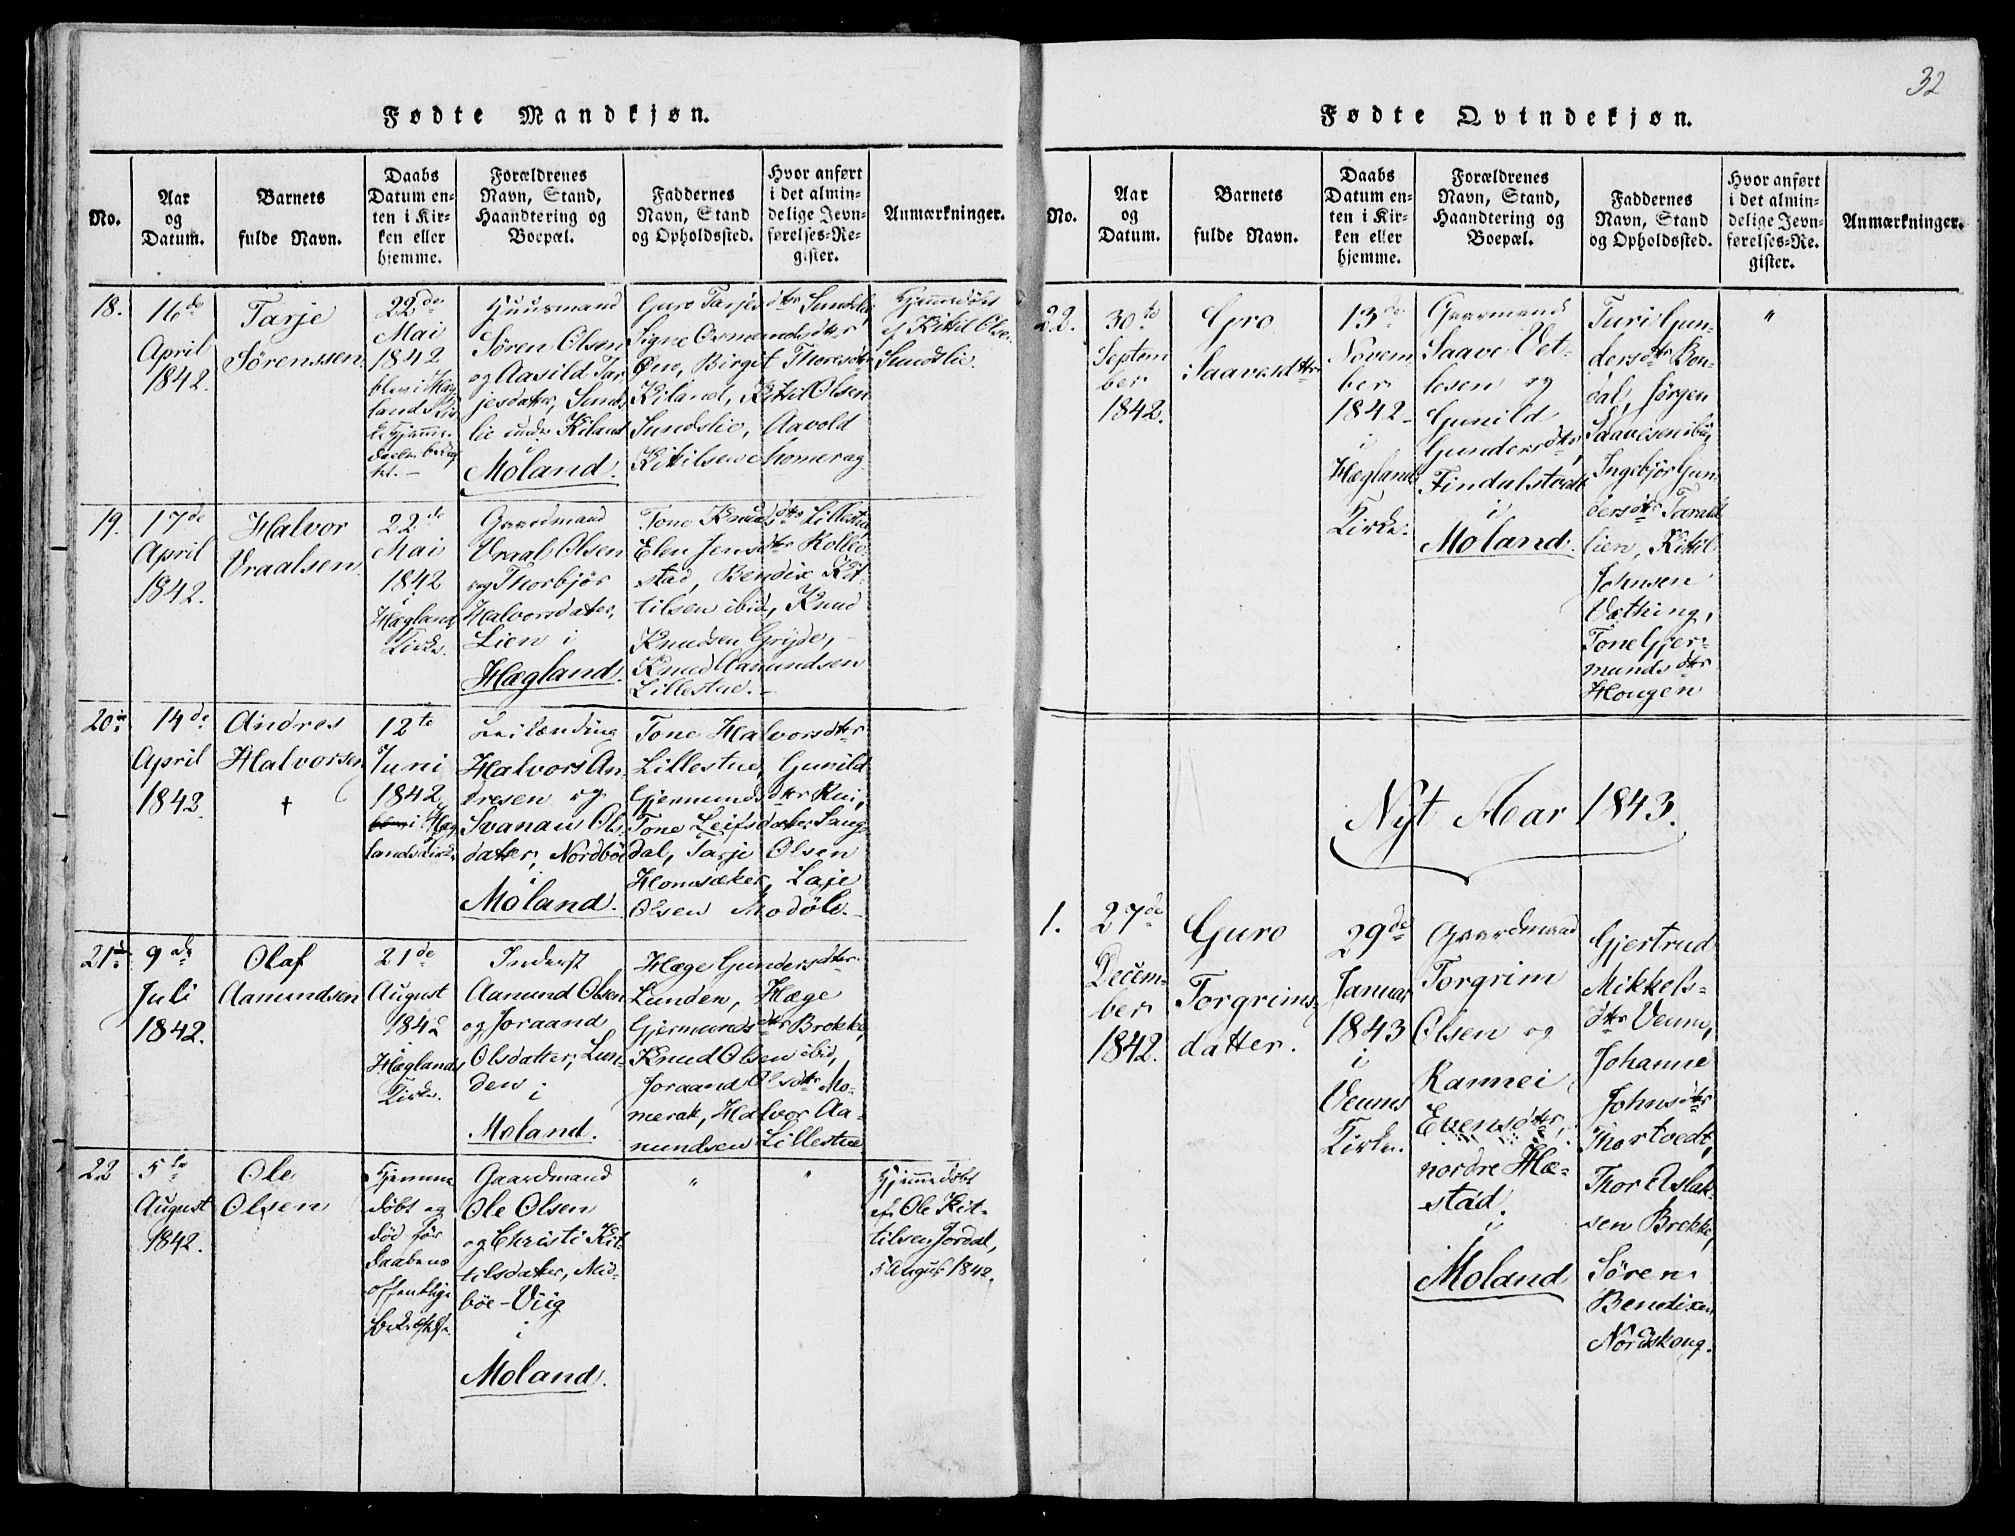 32
Fødte Mandkjøn.
No.
Aar
og
Datum.
Barnets
fulde Navn.
Daabs
Datum en-
ten i Kir-
ken eller
hjemme.
Forældrenes
Navn, Stand,
Haandtering og
Boepæl.
Faddernes
Navn, Stand
og Opholdssted.
Hvor anført
i det almin-
delige Jevn-
førelses-Re-
gister.
Anmærkninger.
18.
16de
April
1842.
Tarje
Sørenssen
22de
Mai
1842
blev i Hæg
lands Kir
Huusmand
Søren Olsen
og Aasild Tar
jesdatter, Sunds
lie under Kiland
Moland.
Guro Tarjesdtr Sundslie
Signe Osmundsdtr
Øue, Birgit Thoresdtr
Kiland, Kittil Olsen
Sundslie, Aavold
Kittilsen Momrag
Hjemmedøbt
af Kittil Olsen
Sundslie.
19.
17de
April
1842.
Halvor
Vraalsen
22de
Mai
1842
i
Hæglands
Kirke.
Gaardmand
Vraal Olsen
og Thorbjør
Halvorsdatter,
Lien i
Hægland.
Tone Knudsdtr Lillestue
Elen Jensdtr Rolleiv
stad, Bendix Kit
tilsen ibid, Knud
Knudsen Grijde,
Knud Aamundsen
Lillestue.
20de
14de
April
1842
Andres
Halvorsen
†
12te
Juni
1842
i Hæg
lands Kirke
Leilænding
Halvors An
dresen og
Svanau Ols
datter, Nordbøe
i
Moland.
Tone Halvorsdtr
Lillestue, Gunild
Gjermundsdtr Rui,
Tone Leifsdatter Saug
dal, Tarje Olsen
Homsæker, Laje
Olsen Modøle.
21de
9de
Juli
1842.
Olaf
Aamundsen
21de
August
1842
i
Hæglands
Kirke.
Inderst
Aanund Olsen
og Joraand
Olsdatter, Lun-
den i
Moland.
Hæge Gundersdtr
Lunden, Hæge
Gjermundsdtr Brokke,
Knud Olsen ibid,
Joraand Olsdtr Mo-
merak, Halvor Aa-
nundsen Lillestue
22
5te
August
1842.
Ole
Olsen
Hjemme
døbt og
død før
Daabens
offentlige
Bekræftelse
Gaardmand
Ole Olsen
og Christi Kit
tilsdatter, Mid-
bøe-Viig
i
Moland.
"
"
Hjemmedøbt
af Ole Kit-
tilsen Jordal,
5 August 1842.
Fødte Qvindekjøn.
No.
Aar
og
Datum.
Barnets
fulde Navn.
Daabs
Datum en-
ten i Kir-
ken eller
hjemme.
Forældrenes
Navn, Stand,
Haandtering og
Boepæl.
Faddernes
Navn, Stand
og Opholdssted.
Hvor anført
i det almin-
delige Jevn-
førelses-Re-
gister.
Anmærkninger.
22.
30te
Septem
ber
1842.
Gro
Saavesdtr
13de
Novem
ber
1842
i
Hæglands
Kirke.
Gaardmand
Saave Vet-
lesen og
Gunild
Gundersdtr,
Findalstvedt
i
Moland.
Turi Gun-
dersdtr Bon-
dal, Jørgen
Saavesen ibid,
Ingebjør Gun
dersdtr Tarald
lien, Kittil
Johnsen
Væthing,
Tone Gjer-
mundsdtr
Hougen
"
Nyt Aar 1843.
1.
27de
Decem-
ber
1842.
Guro
Torgrims-
datter.
29de
Januar
1843
i
Veums
Kirke.
Gaardmand
Torgrim
Olsen og
Rannei
Evensdtr,
nordre Hæ-
stad.
i
Moland
Gjertrud
Mikkels-
dtr Veum,
Johanne
Johnsdtr
Thortvedt,
Thor Aslak-
sen Brokke,
Søren
Bendixen
Nordskoug.